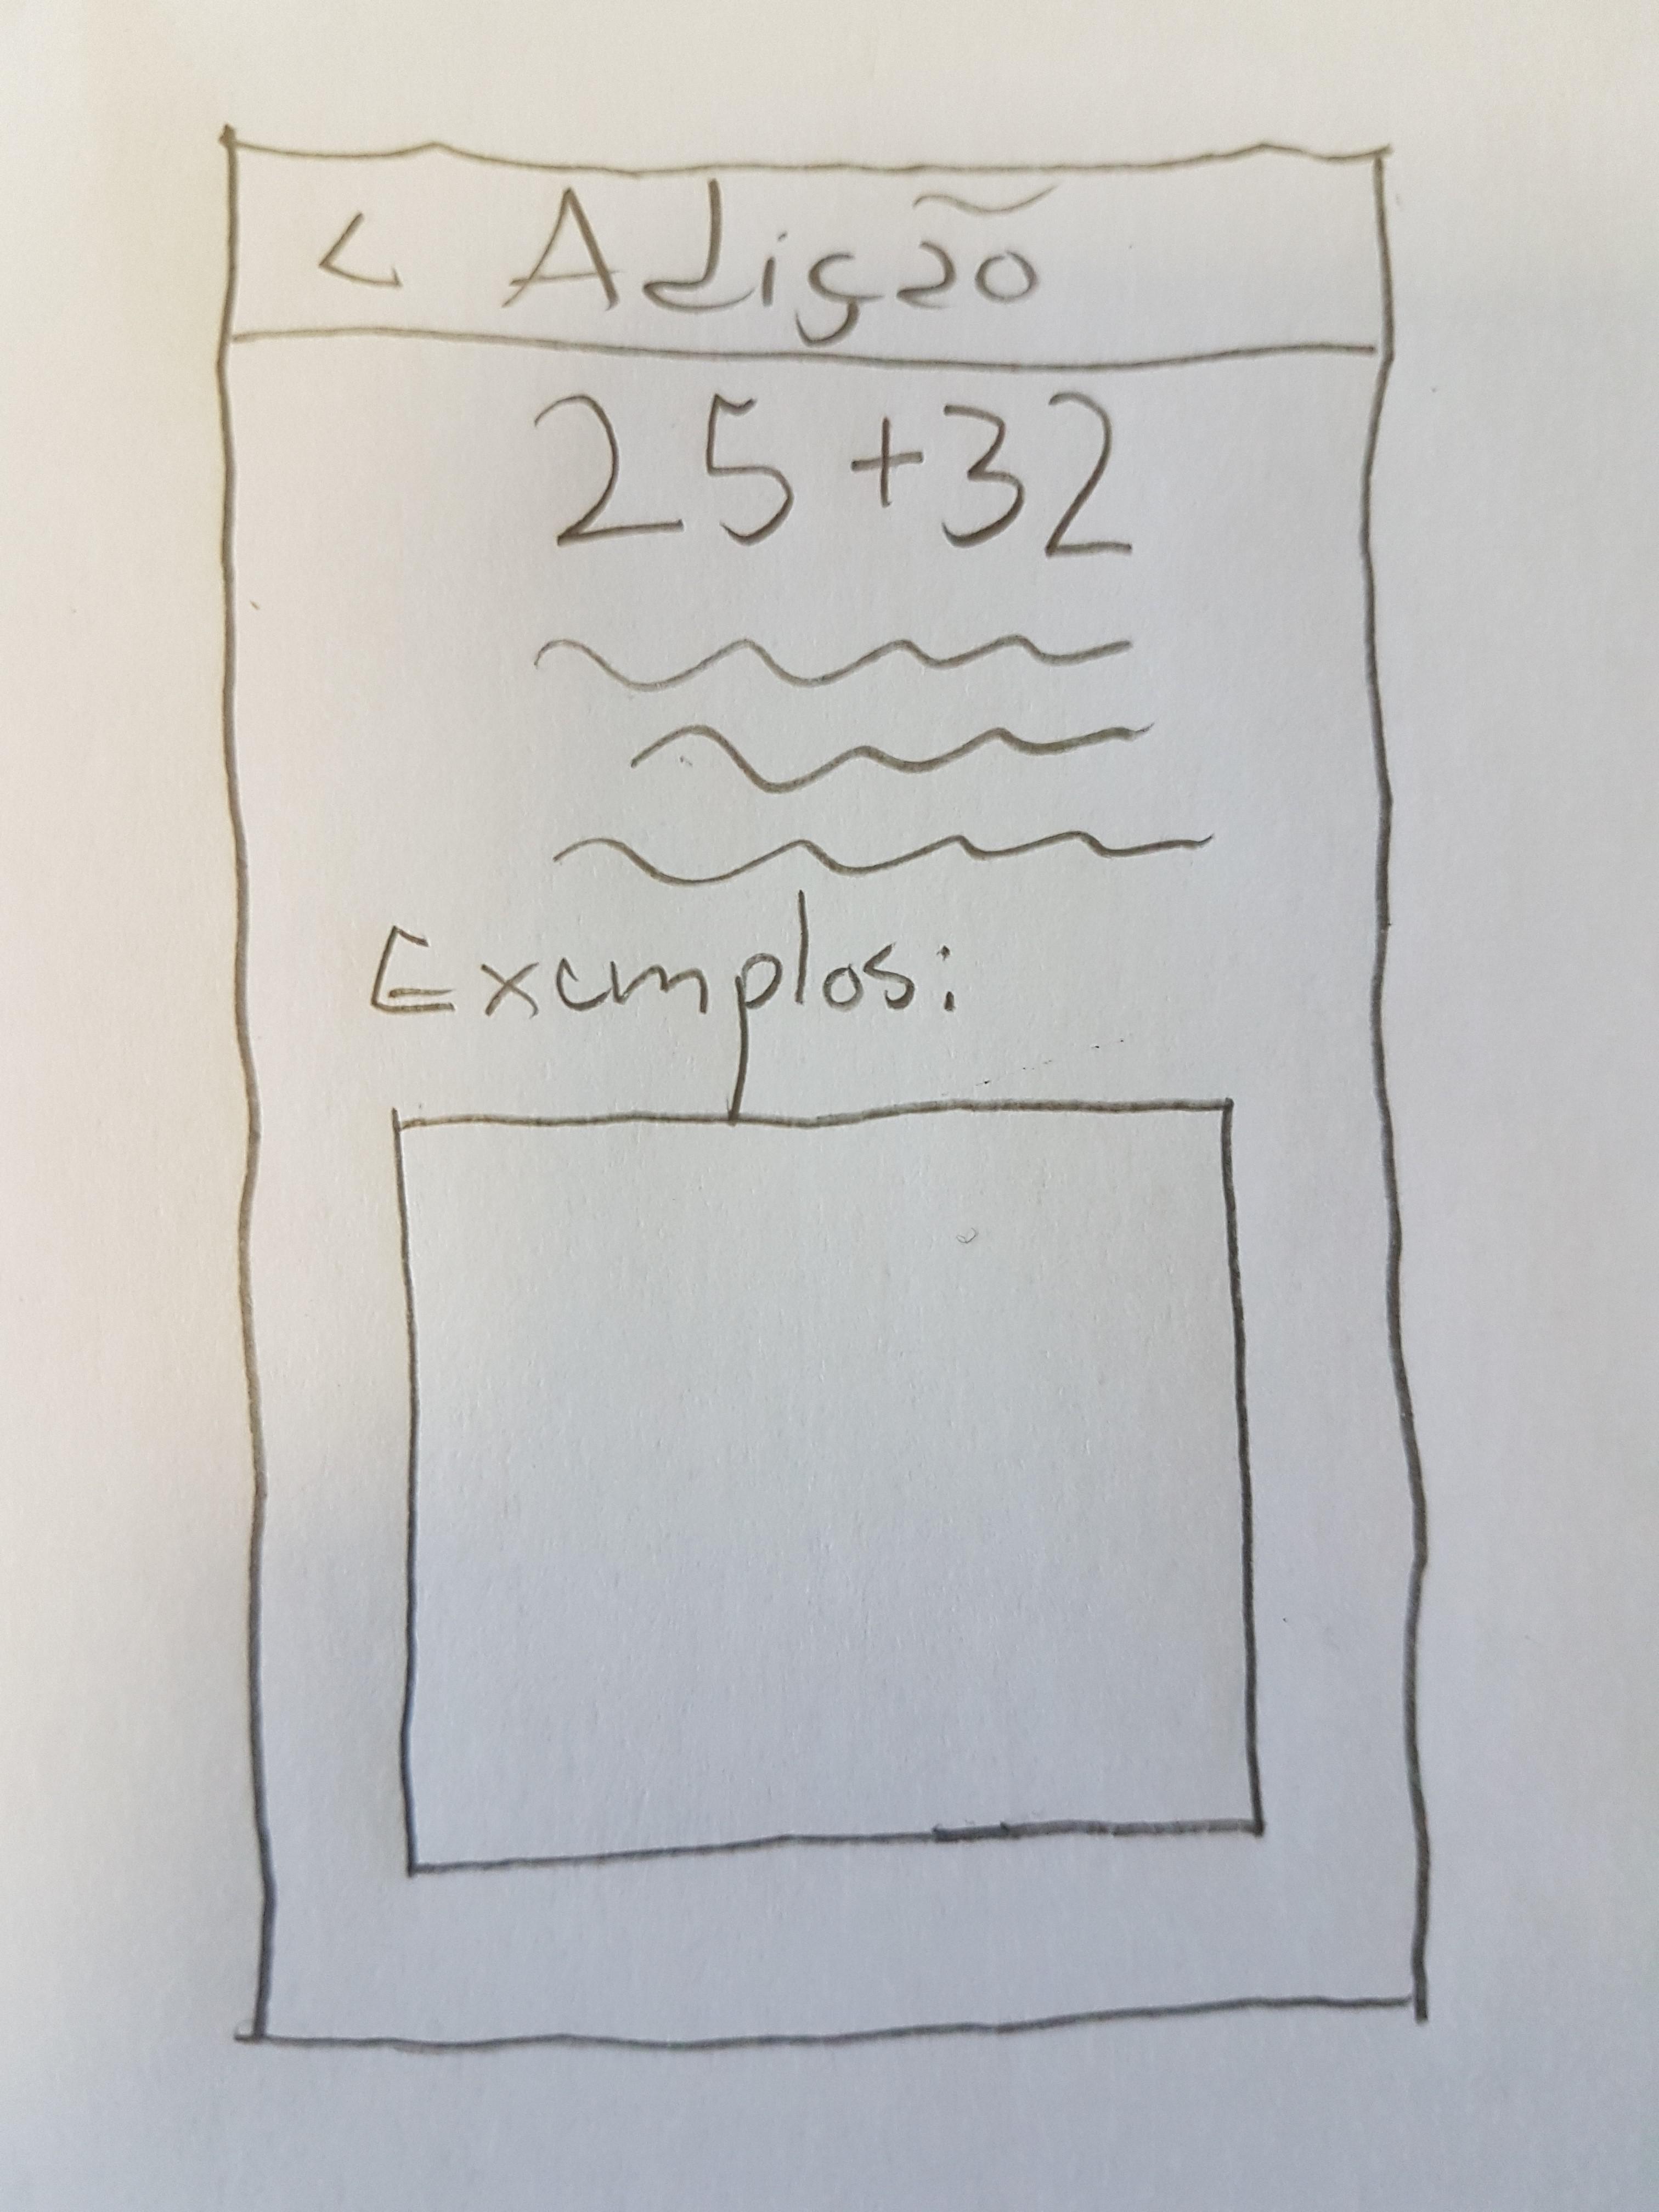 < Adição
25+32
Exemplos: